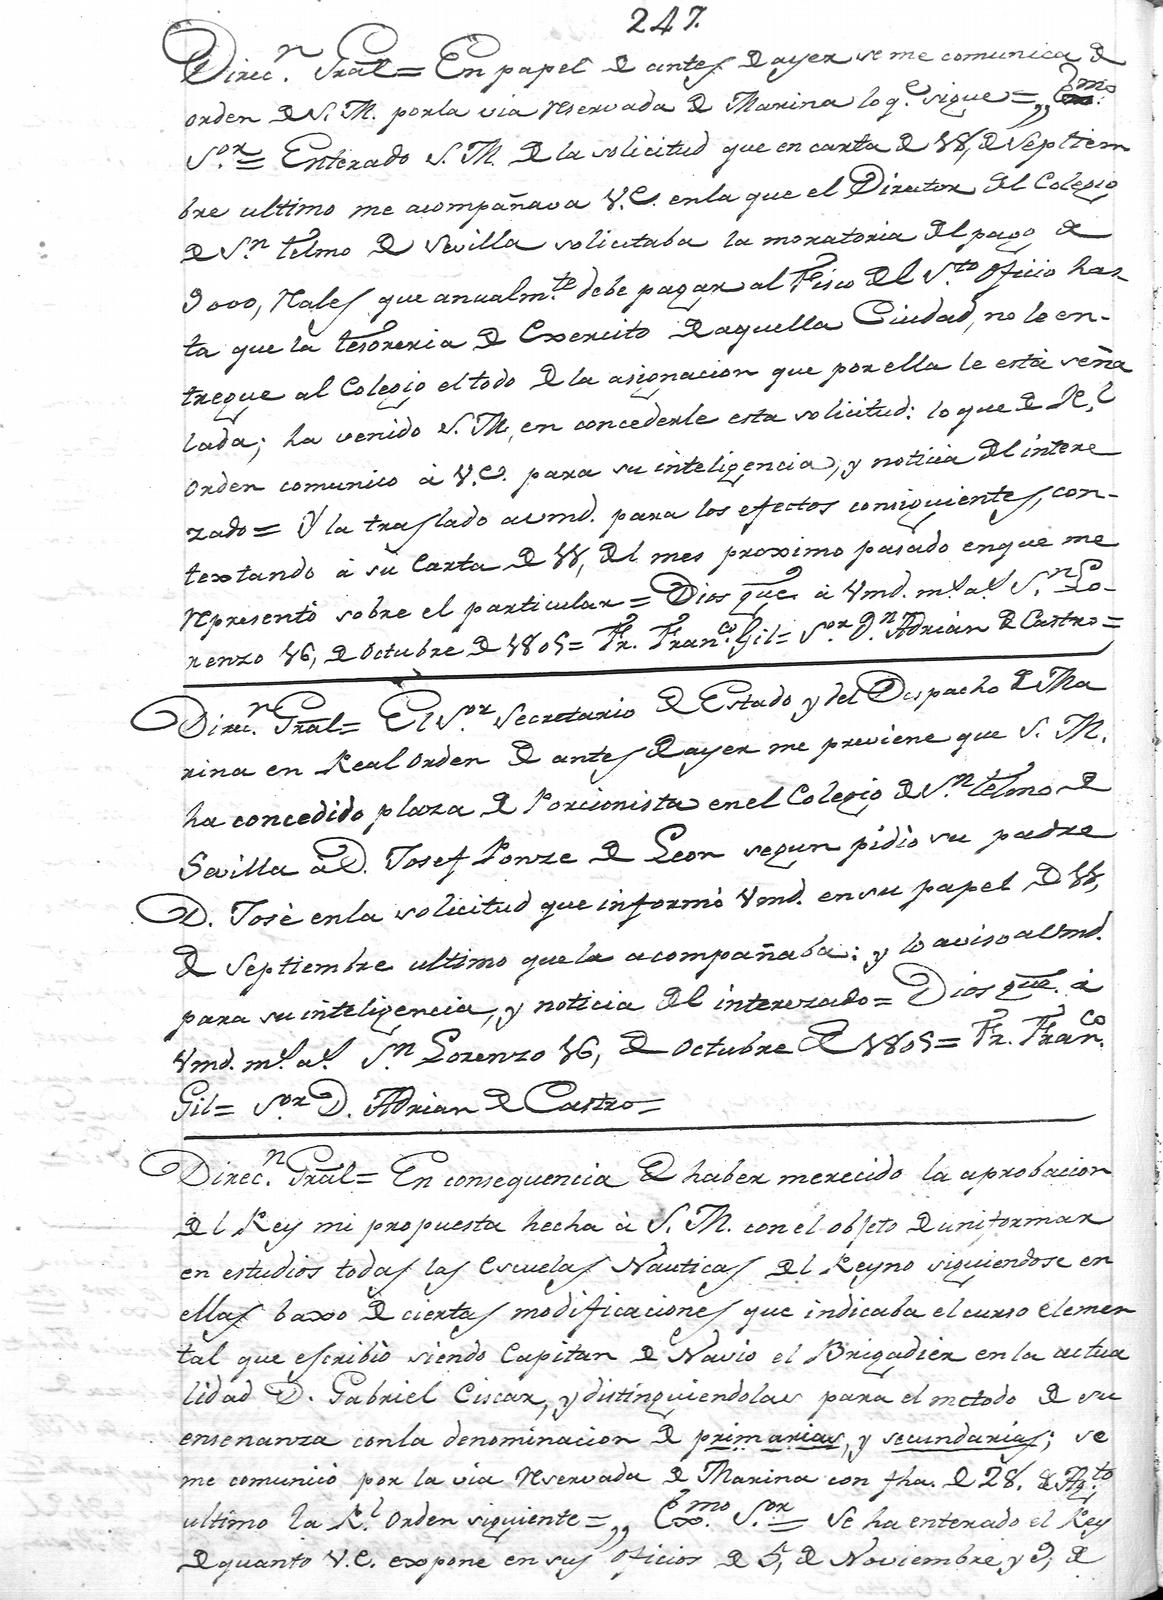 247.
Direc.n Gral = En papel de antes de ayer se me comunica de
orden de S. M. por la via reservada de Marina lo q.e sigue = ,, Exmo
S.or = Enterado S. M. de la solicitud que en carta de 18, de Septiem
bre ultimo me acompañava V.E. en la que el Director del Colegio
de S.n Telmo de Sevilla solicitaba la moratoria del pago de
9000, rales que anualm.te debe pagar al Fisco del S.to Oficio has
ta que la tesoreria de Exercito de aquella Ciudad, no le en-
tregue al Colegio el todo de la asignacion que por ella le està seña
lada; ha venido S. M. en concederle esta solicitud: lo que de R.l
orden comunico à V.E. para su inteligencia, y noticia del intere
zado = Y la traslado a vmd. para los efectos consiguientes, con-
textando à su Carta de 11, del mes proximo pasado en que me
representò sobre el particular = Dios gue. à Vmd. m.s a.s S.n Lo-
renzo 16, de Octubre de 1805 = Fr. Fran.co Gil = S.or D.n Adrian de Castro =
Direc.n Gral = El S.or Secretario de Estado y del Despacho de Ma
rina en Real Orden de antes de ayer me previene que S. M.
ha concedido plaza de Porcionista en el Colegio de S.n Telmo de
Sevilla à D. Josef Ponze de Leon segun pidio su padre
D. Josè en la solicitud que informò Vmd. en su papel de 11,
de Septiembre ultimo que la acompañaba: y lo aviso a Vmd.
para su inteligencia, y noticia del interezado = Dios gue. à
Vmd. m.s a.s S.n Lorenzo 16, de Octubre de 1805 = Fr. Fran.co
Gil = S.or D. Adrian de Castro =
Direc.n Gral = En consequencia de haber merecido la aprobacion
del Rey mi propuesta hecha à S. M. con el objeto de uniformar
en estudios todas las Escuelas Nauticas del Reyno siguiendose en
ellas baxo de ciertas modificaciones que indicaba el curso elemen
tal que escribiò siendo Capitan de Navio el Brigadier en la actua
lidad D. Gabriel Ciscar, y distinguiendolas para el metodo de su
ensenanza con la denominacion de primarias, y secundarias; se
me comunicò por la via reservada de Marina con fha. de 28. de Ag.to
ultimo la R.l Orden siguiente = ,, Exmo. S.or = Se ha enterado el Rey
de quanto V.E. expone en sus oficios de 5, de Noviembre, y 9, de